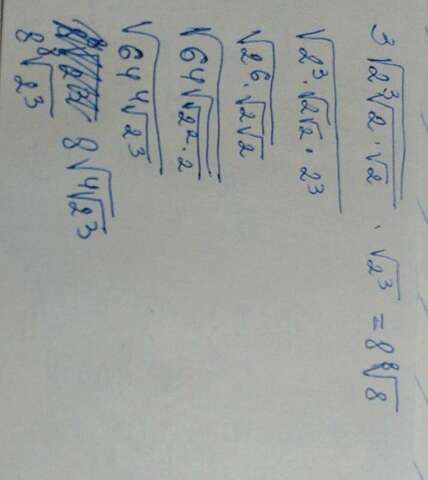 3√2³√2·√2 · √2³ = 8⁸√8
√2³·√2√2·2³
√2⁶·√2√2
√64√2²·2
√64⁴√2³
8√⁴√2³
8⁸√2³